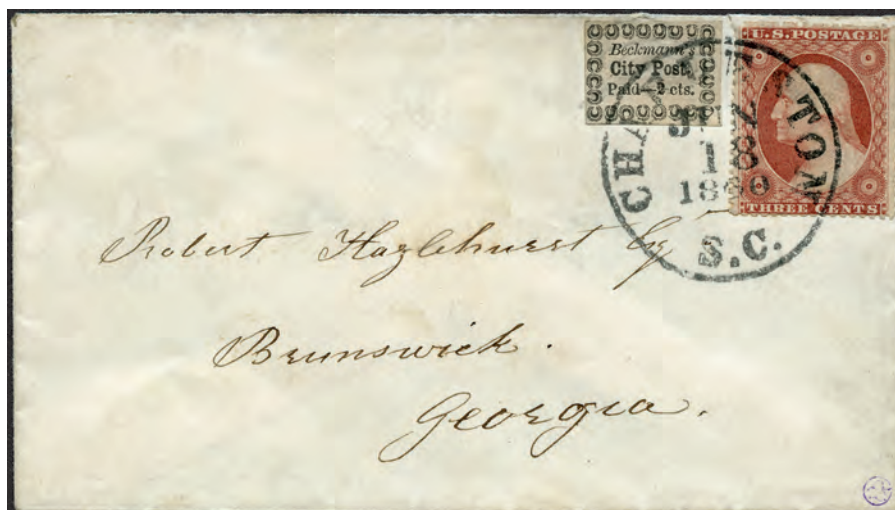 Beckmann's
City Post.
Paid—2 cts.
U.S. POSTAGE
THREE CENTS
CHARLESTON
18
1860
S.C.
Robert Hazlehurst Esq
Brunswick.
Georgia.